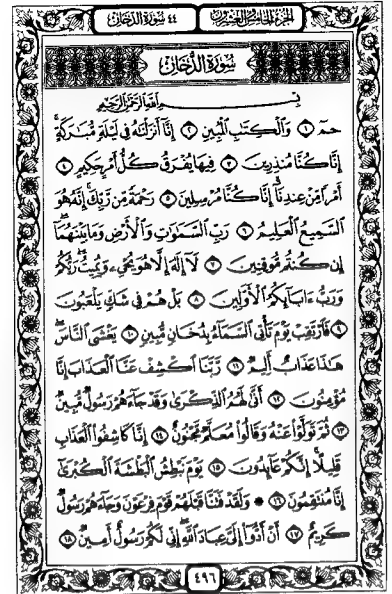 الجزء الخامس والعشرون
٤٤ سورة الدخان
سُورَةُ الدُّخَانِ
بِسْمِ اللَّهِ الرَّحْمَٰنِ الرَّحِيمِ
حمٓ ١ وَٱلْكِتَٰبِ ٱلْمُبِينِ ٢ إِنَّآ أَنزَلْنَٰهُ فِى لَيْلَةٍ مُّبَٰرَكَةٍ
إِنَّا كُنَّا مُنذِرِينَ ٣ فِيهَا يُفْرَقُ كُلُّ أَمْرٍ حَكِيمٍ ٤
أَمْرًا مِّنْ عِندِنَآ إِنَّا كُنَّا مُرْسِلِينَ ٥ رَحْمَةً مِّن رَّبِّكَ إِنَّهُۥ هُوَ
ٱلسَّمِيعُ ٱلْعَلِيمُ ٦ رَبِّ ٱلسَّمَٰوَٰتِ وَٱلْأَرْضِ وَمَا بَيْنَهُمَآ
إِن كُنتُم مُّوقِنِينَ ٧ لَآ إِلَٰهَ إِلَّا هُوَ يُحْىِۦ وَيُمِيتُ رَبُّكُمْ
وَرَبُّ ءَابَآئِكُمُ ٱلْأَوَّلِينَ ٨ بَلْ هُمْ فِى شَكٍّ يَلْعَبُونَ
٩ فَٱرْتَقِبْ يَوْمَ تَأْتِى ٱلسَّمَآءُ بِدُخَانٍ مُّبِينٍ ١٠ يَغْشَى ٱلنَّاسَ
هَٰذَا عَذَابٌ أَلِيمٌ ١١ رَّبَّنَا ٱكْشِفْ عَنَّا ٱلْعَذَابَ إِنَّا
مُؤْمِنُونَ ١٢ أَنَّىٰ لَهُمُ ٱلذِّكْرَىٰ وَقَدْ جَآءَهُمْ رَسُولٌ مُّبِينٌ
١٣ ثُمَّ تَوَلَّوْا۟ عَنْهُ وَقَالُوا۟ مُعَلَّمٌ مَّجْنُونٌ ١٤ إِنَّا كَاشِفُوا۟ ٱلْعَذَابِ
قَلِيلًا إِنَّكُمْ عَآئِدُونَ ١٥ يَوْمَ نَبْطِشُ ٱلْبَطْشَةَ ٱلْكُبْرَىٰٓ
إِنَّا مُنتَقِمُونَ ١٦ * وَلَقَدْ فَتَنَّا قَبْلَهُمْ قَوْمَ فِرْعَوْنَ وَجَآءَهُمْ رَسُولٌ
كَرِيمٌ ١٧ أَنْ أَدُّوٓا۟ إِلَىَّ عِبَادَ ٱللَّهِ إِنِّى لَكُمْ رَسُولٌ أَمِينٌ ١٨
٤٩٦